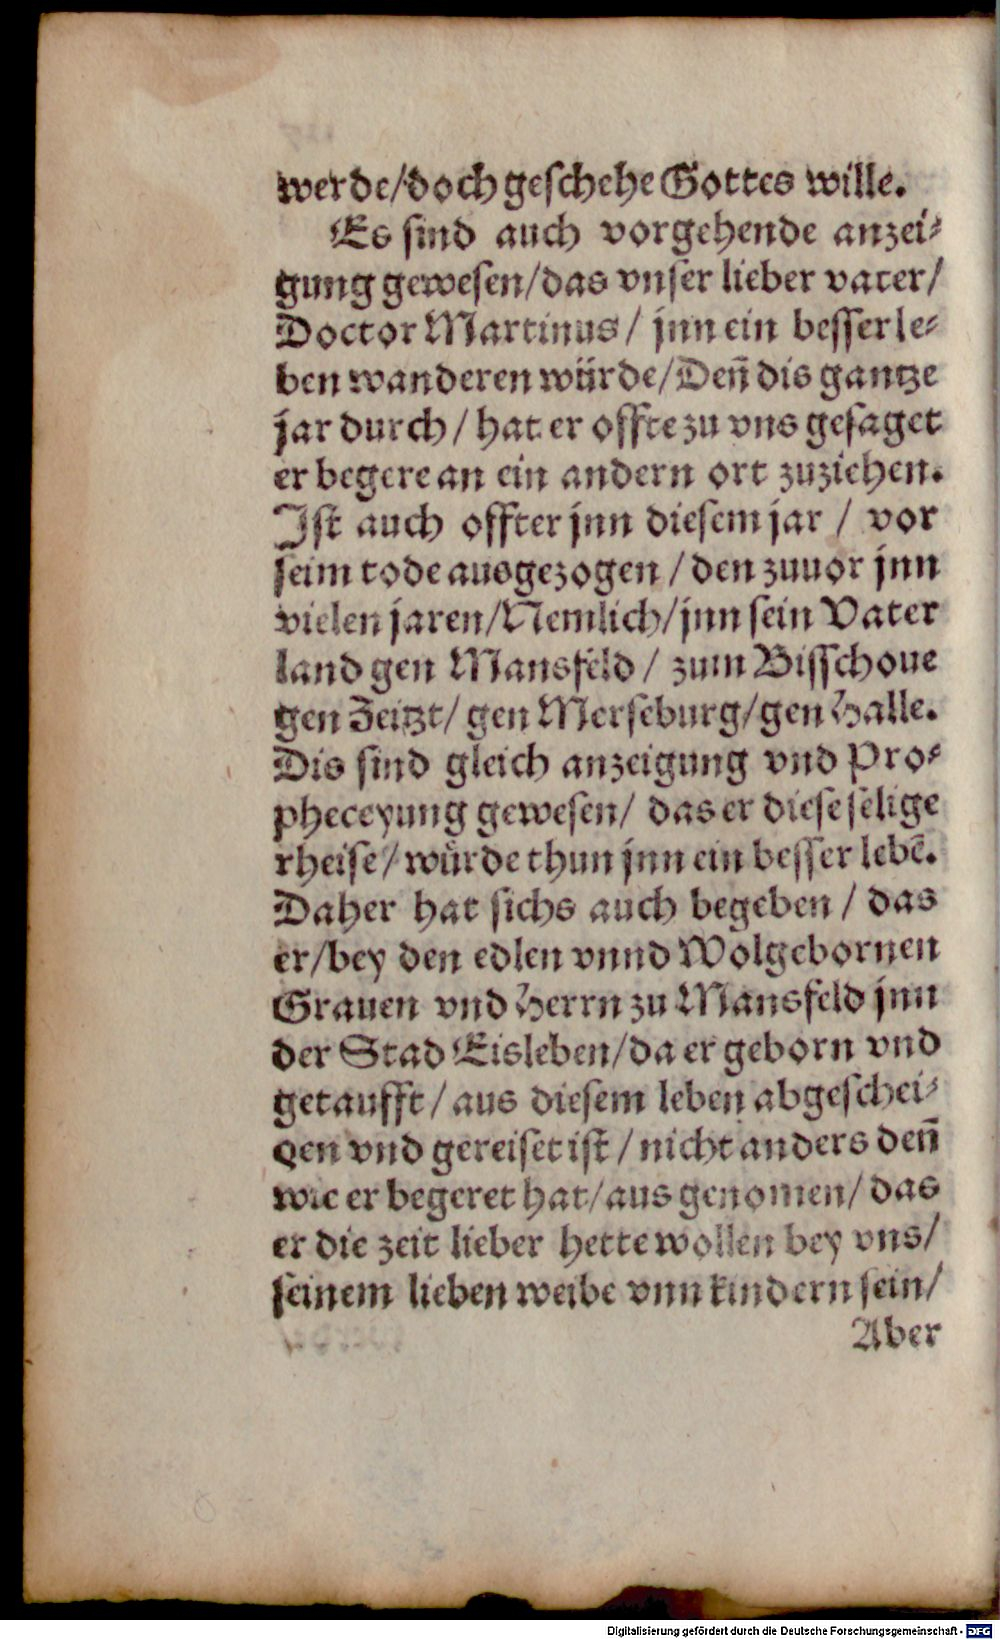 werde/doch geschehe Gottes wille.
Es sind auch vorgehende anzei⸗
gung gewesen/das vnser lieber vater/
Doctor Martinus/ jnn ein besser le⸗
ben wanderen würde/Deñ dis gantze
jar durch/ hat er offte zu vns gesaget
er begere an ein andern ort zuziehen.
Ist auch offter jnn diesem jar / vor
seim tode ausgezogen/den zuuor jnn
vielen jaren/Nemlich/jnn sein Vater
land gen Mansfeld/ zum Bisschoue
gen Zeitzt/ gen Merseburg/gen Halle.
Dis sind gleich anzeigung vnd Pro⸗
pheceyung gewesen/ das er diese selige
rheise/ würde thun jnn ein besser lebē.
Daher hat sichs auch begeben / das
er/bey den edlen vnnd Wolgebornen
Grauen vnd Herrn zu Mansfeld jnn
der Stad Eisleben/da er geborn vnd
getaufft/ aus diesem leben abgeschei⸗
den vnd gereiset ist/ nicht anders deñ
wie er begeret hat/aus genomen/ das
er die zeit lieber hette wollen bey vns/
seinem lieben weibe vnn kindern sein/
Aber
Digitalisierung gefördert durch die Deutsche Forschungsgemeinschaft - DFG